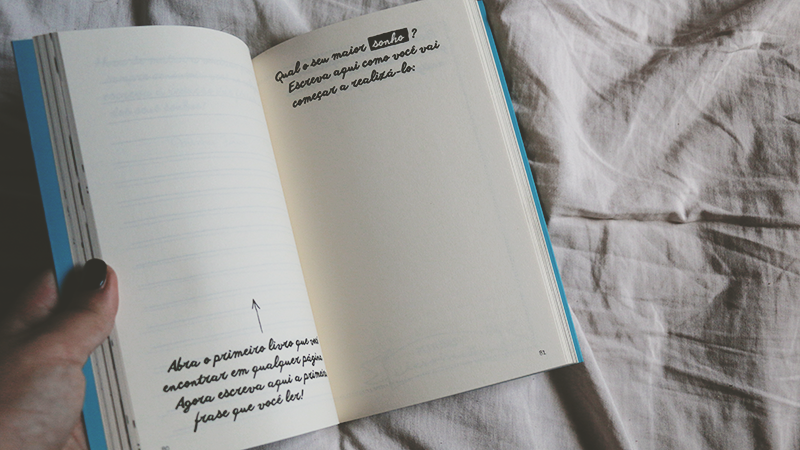 Abra o primeiro livro que
encontrar em qualquer
Agora escreva aqui a
frase que você ler!
Qual o seu maior sonho ?
Escreva aqui como você vai
começar a realizá-lo:
81